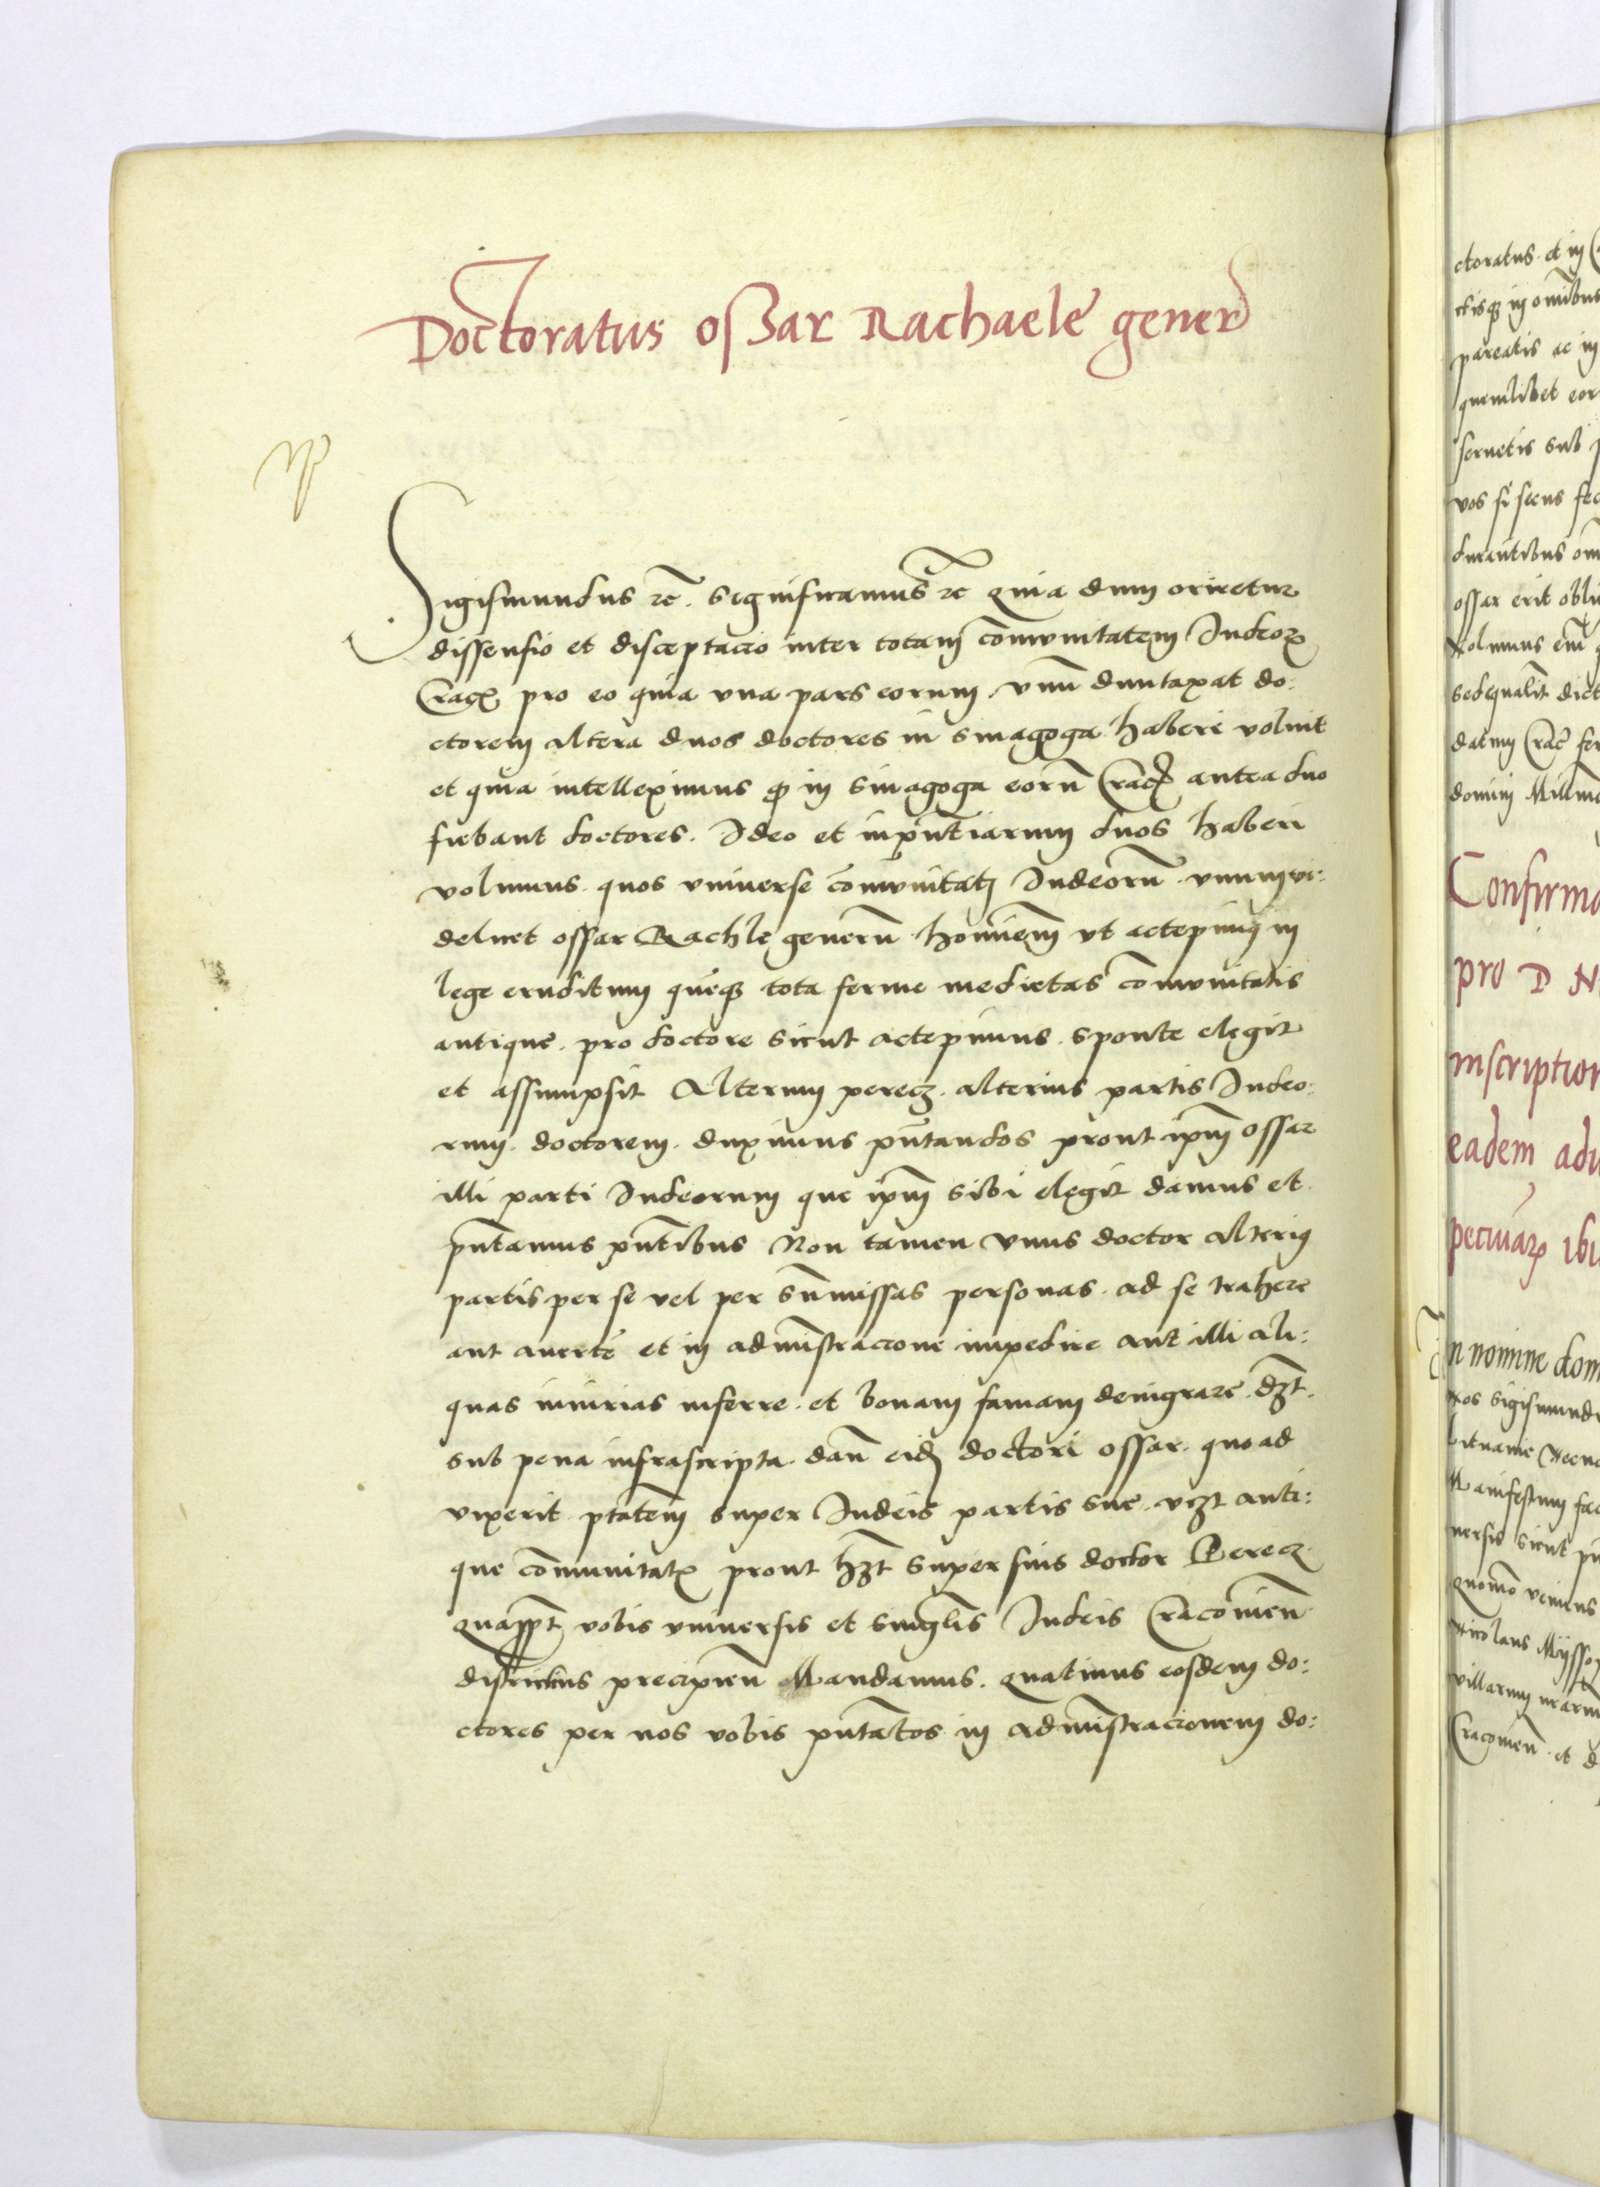 Doctoratus osʒar Rachaele gener
Sigismundus etc. Significamus etc quia dum oriretur
dissensio et disceptacio inter totam comunitatem Judeoꝝ
Cracꝭ pro eo quia una pars eorum unū duntaxat do:
ctorem altera duos doctores in sinagoga haberi voluit
et quia intelleximus ꝙ in sinagoga eorū Cracꝭ antea duo
fiebant doctores. Ideo et inpn̄tiarum duos haberi
volumus quos universe com̄unitatj Judeorū unum vi:
delicet ossar Rachle generū hominem ut accepimus in
lege eruditum quēqꝫ tota ferme medietas com̄unitatis
antique pro doctore sicut accepimus sponte elegit
et assumpsit Alterum perecz alterius partis Judeo:
rum doctorem duximus pn̄tandos prout ip̄m ossar
illi parti Judeorum que ip̄m sibi elegit damus et
pn̄tamus pn̄tibus Non tamen unus doctor alterius
partis per se vel per sum̄issas personas ad se trahere
aut averte et in administracione impedire aut illi ali:
quas iniurias inferre et bonam famam denigrare dꝫt
sub pena infrascripta dan̄ eidꝫ doctori ossar quoad
vixerit ptātem super Judeis partis sue vꝫt anti:
que com̄unitatꝭ prout hꝫt super suis doctor Perecz
quapp̄t vobis universis et singl̄is Judeis Cracovien̄
districtius precipien̄ Mandamus quatinus eosdem do:
ctores per nos vobis pn̄tatos in administracionem do:
ctoratus et in
ctisqꝫ in omībus
pareatis ac in
quemlibet eor
servetis sub
vos si secus fec
durantibus om
ossar erit obli
Volumus em̄
sed equalit̄ dict
datum Crac̄ fer
domini Mill̄mo
Confirma
pro D N
inscription
eadem adv
pecuiaꝝ ibi
In nomine dom
Nos Sigismund
Lituanie Necno
Manifestum fac
versis sicut pn̄
quomō veniens
Nicolaus Mysso
villarum nr̄arum
Cracovien̄ et d